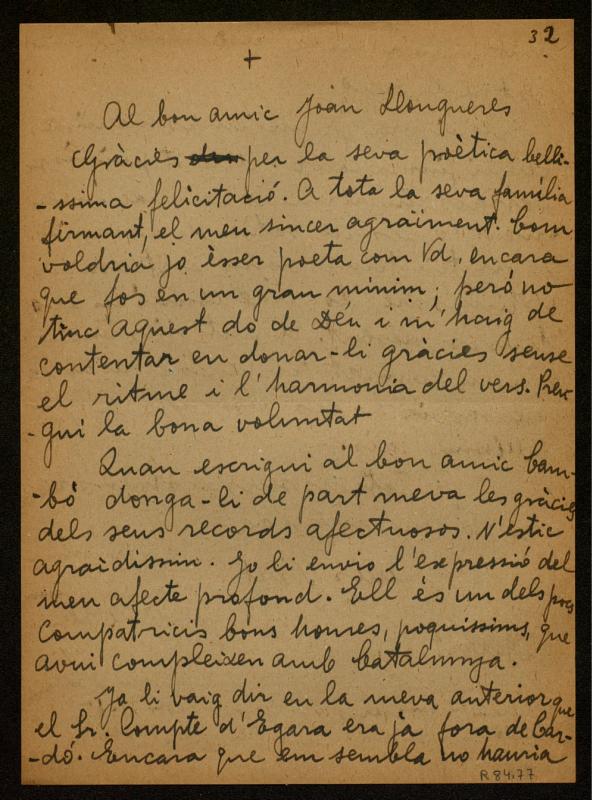 32
+
Al bon amic Joan Llongueres
Gràcies per la seva poètica belli-
-ssima felicitació. A tota la seva família
firmant, el meu sincer agraïment. Com
voldria jo ésser poeta com Vd. encara
que fos en un grau mínim; però no
tinc aquest do de Déu i m'haig de
contentar en donar-li gràcies sense
el ritme i l'harmonia del vers. Pren-
-gui la bona voluntat
Quan escrigui al bon amic Cam-
-bó donga-li de part meva les gràcies
dels seus records afectuosos. N'estic
agraidissim. Jo li envio l'expressió del
meu afecte profond. Ell és un dels pocs
compatricis bons homes, poquíssims, que
avui compleixen amb Catalunya.
Ja li vaig dir en la meva anterior que
el Sr. Compte d'Egara era ja fora de Car-
-dó. Encara que em sembla no hauria
R 84.77